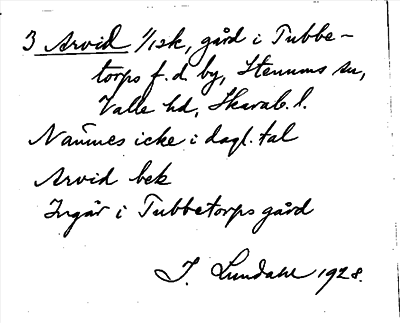 3 Arvid 1/1 sk, gård i Tubbe-
torps f.d. by, Stenums sn,
Valle hd, Skarab. l.
Nämnes icke i dagl. tal
Arvid bek
Ingår i Tubbetorps gård
I. Lundahl 1928.